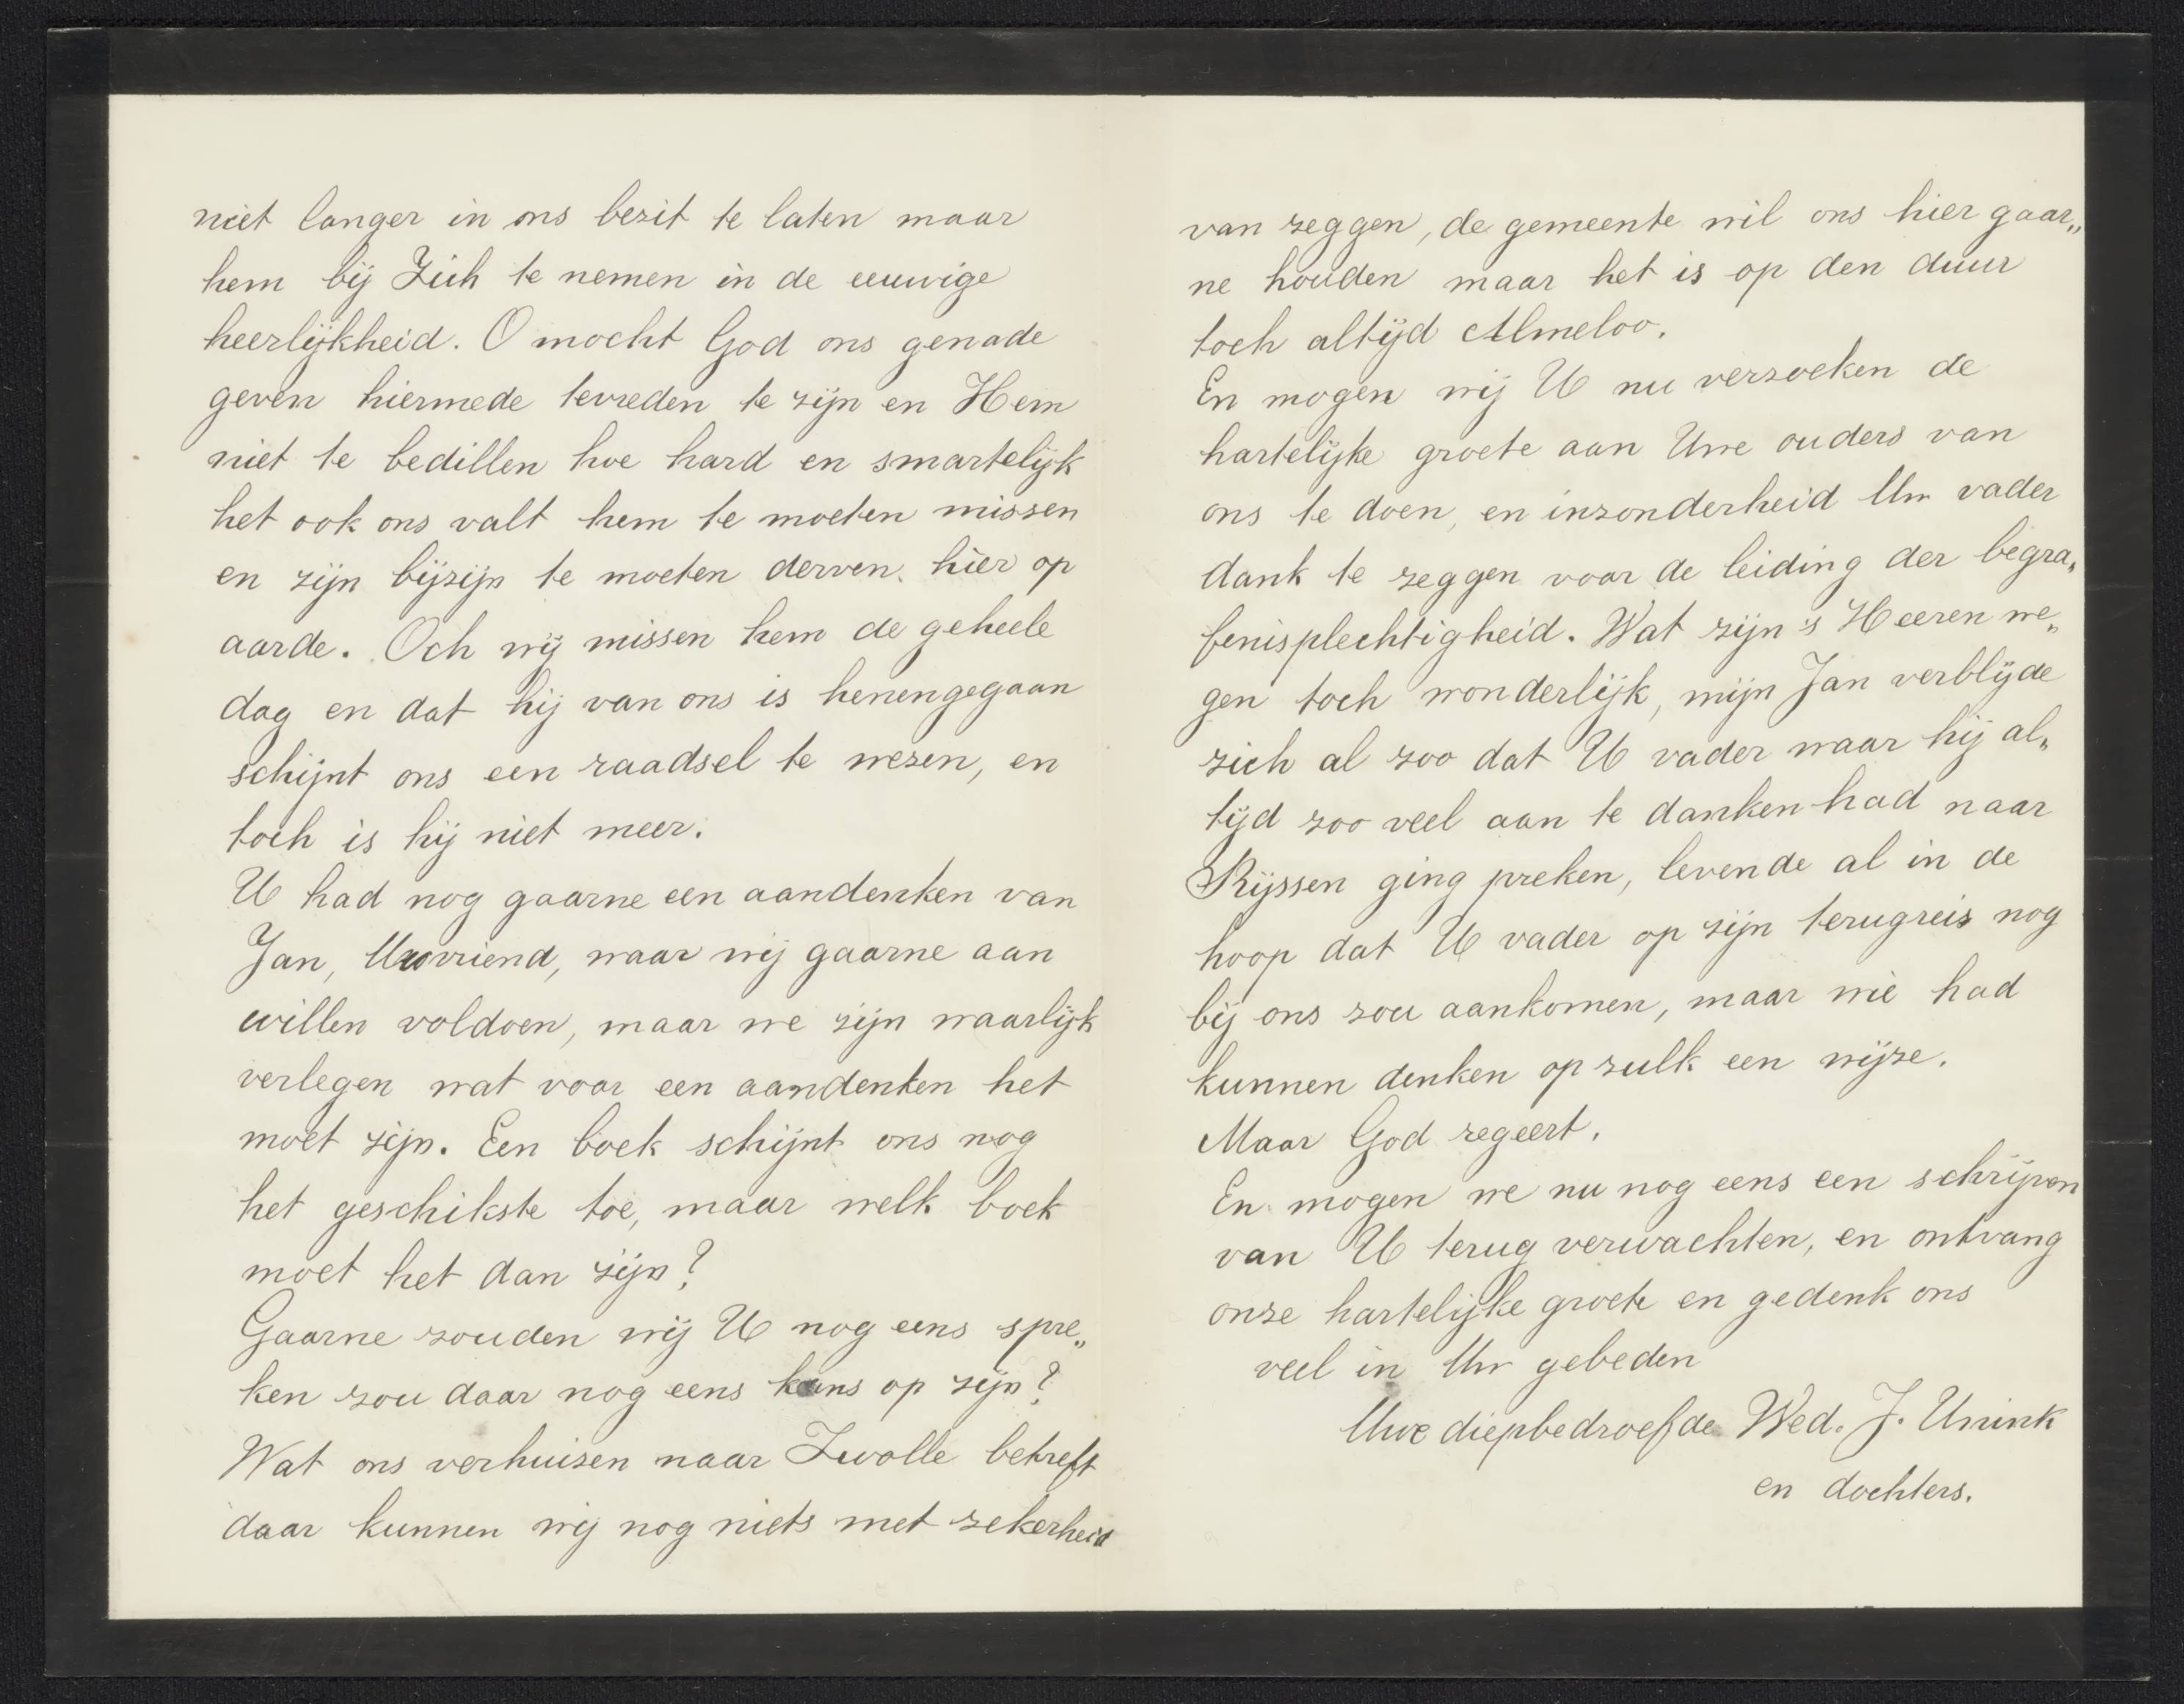 niet langer in ons bezit te laten maar
hem bij Zich te nemen in de eeuwige
heerlijkheid. O mocht God ons genade
geven hiermede tevreden te zijn en Hem
niet te bedillen hoe hard en smartelijk
het ook ons valt hem te moeten missen
en zijn bijzijn te moeten derven hier op
aarde. Och wij missen hem de geheele
dag en dat hij van ons is henengegaan
schijnt ons een raadsel te wezen, en
toch is hij niet meer.
U had nog gaarne een aandenken van
Jan, Uw vriend, waar wij gaarne aan
willen voldoen, maar we zijn waarlijk
verlegen wat voor een aandenken het
moet zijn. Een boek schijnt ons nog
het geschikste toe, maar welk boek
moet het dan zijn?
Gaarne zouden wij U nog eens spre„
ken zou daar nog eens kans op zijn?
Wat ons verhuizen naar Zwolle betreft
daar kunnen wij nog niets met zekerheid
van zeggen, de gemeente wil ons hier gaar„
ne houden maar het is op den duur
toch altijd Almeloo.
En mogen wij U nu verzoeken de
hartelijke groete aan Uwe ouders van
ons te doen, en inzonderheid Uw vader
dank te zeggen voor de leiding der begra„
fenisplechtigheid. Wat zijn 's Heeren we„
gen toch wonderlijk, mijn Jan verblijde
zich al zoo dat U vader waar hij al„
tijd zoo veel aan te danken had naar
Rijssen ging preken, levende al in de
hoop dat U vader op zijn terugreis nog
bij ons zou aankomen, maar wie had
kunnen denken op zulk een wijze.
Maar God regeert.
En mogen we nu nog eens een schrijven
van U terug verwachten, en ontvang
onze hartelijke groete en gedenk ons
veel in Uw gebeden
Uwe diepbedroefde Wed. J. Unink
en dochters.